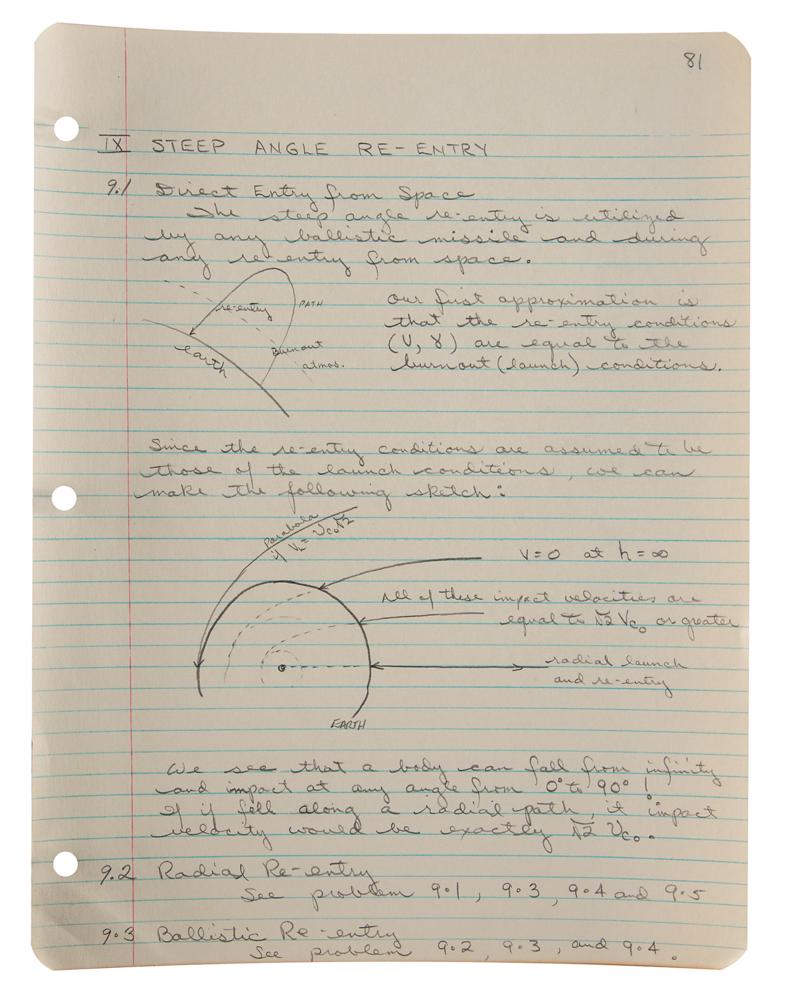 81
IX STEEP ANGLE RE-ENTRY
9.1 Direct Entry from Space
The steep angle re-entry is utilized
by any ballistic missile and during
any re-entry from space.
re-entry
PATH
earth
Burnout
atmos.
Our first approximation is
that the re-entry conditions
(V, γ) are equal to the
burnout (launch) conditions.
Since the re-entry conditions are assumed to be
those of the launch conditions, we can
make the following sketch:
Parabola
if VL = Vco√2
V=0 at h=∞
All of these impact velocities are
equal to √2 Vco or greater
radial launch
and re-entry
EARTH
We see that a body can fall from infinity
and impact at any angle from 0° to 90°!
If if fell along a radial path, it impact
velocity would be exactly √2 Vco.
9.2 Radial Re-entry
See problem 9.1, 9.3, 9.4 and 9.5
9.3 Ballistic Re-entry
See problem 9.2, 9.3, and 9.4.